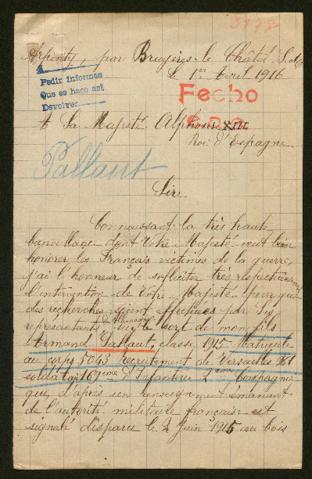 3878
Arpenty, par Bruyères le Châtel, S. &
Le 1er Avril 1916
Pedir informes
Que se haga así
Devolver
Fecho
A Sa Majesté Alphonse XIII
Roi d'Espagne
Pallaut
Sire,
Connaissant la très haute
bienveillance dont Votre Majesté veut bien
honorer les Français victimes de la guerre,
j'ai l'honneur de solliciter très respectueusement
l'intervention de Votre Majesté pour que
des recherches soient effectuées par Ses
représentants sur le sort de mon fils
Armand Pallaut, classe 1915 Matricule
au corps 7043 recrutement de Versailles
soldat au d'Infanterie Compagnie
que, d'après un renseignement émanant
de l'autorité militaire française est
signalé disparu le 2 Juin 1915 au bois